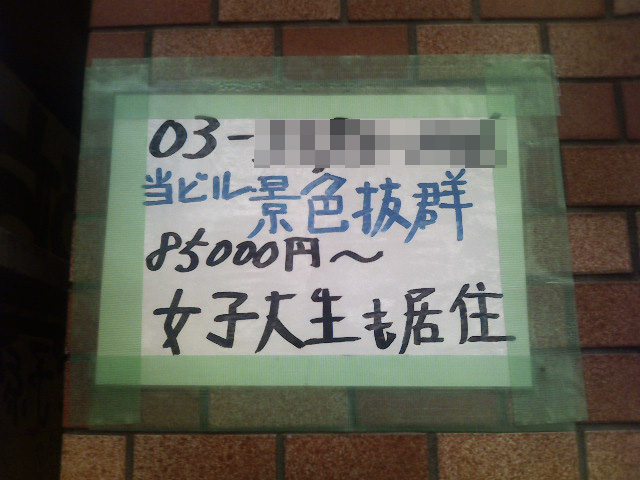 03-
当ビル景色抜群
85000円〜
女子大生も居住